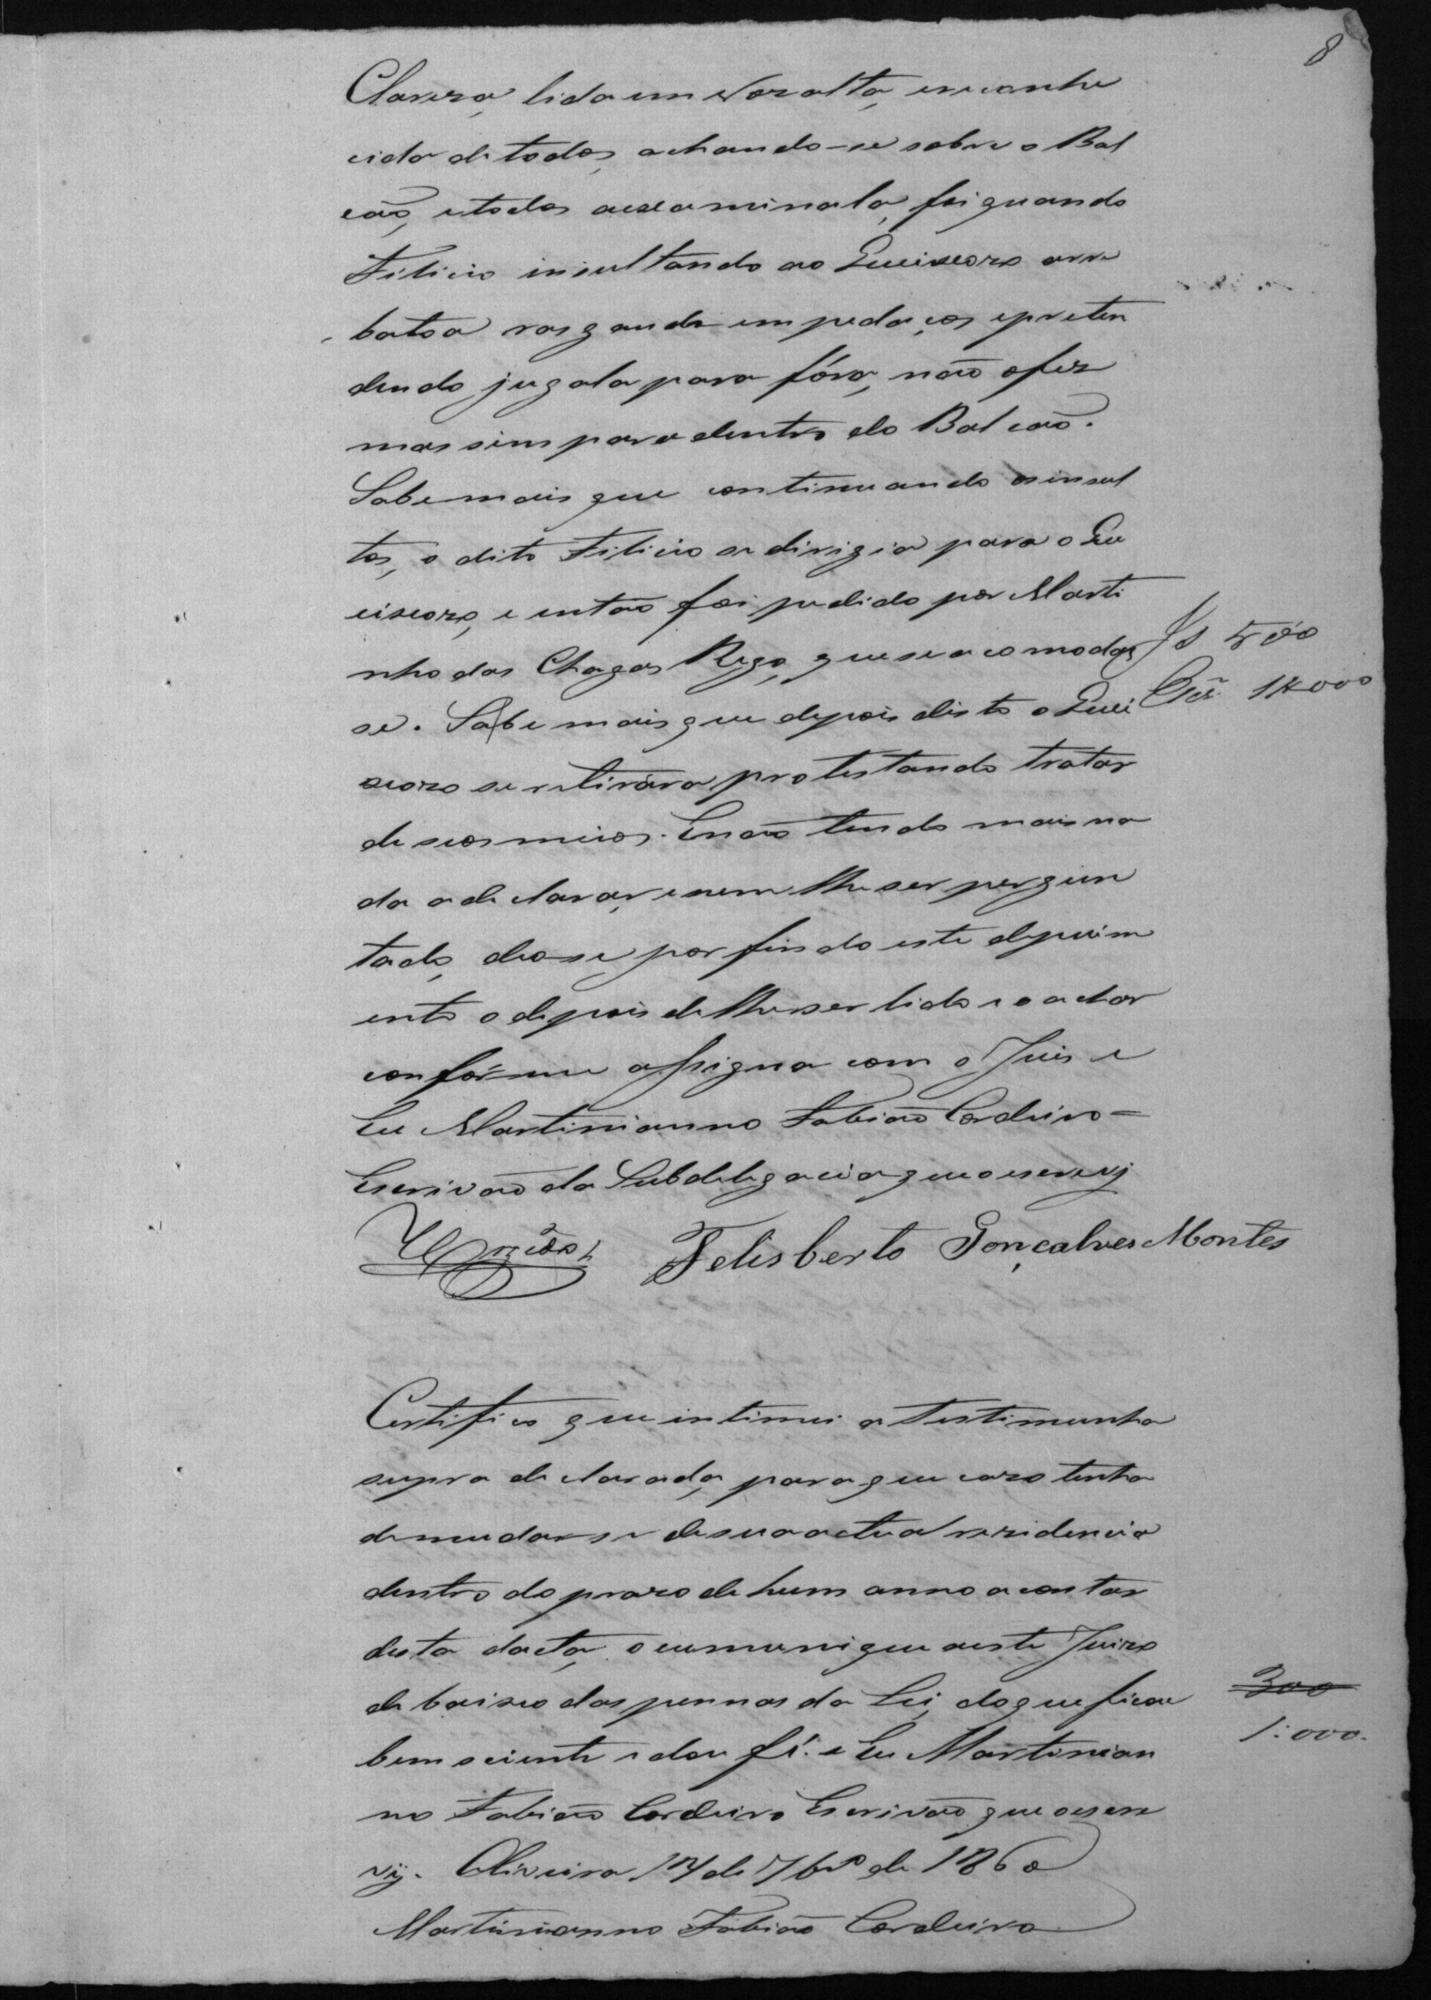 8
Clareza, lida em voz alta, e reconhe
cida de todos, achando-se sobre o Bal
cão, e todos a examinala, foi quando
Felicio insultando ao Queixozo arre
batoa rasgando em pedaços e preten
dendo jugala para fóra, não o fez
mas sim para dentro do Balcão.
Sabe mais que continuando os insul
tos, o dito Felicio se dirigia para o Que
eixozo, e então foi pedido por Marti
nho das Chagas Rego, que se acomodas
Js 500
se. Sabe mais que depois disto o Quei
1#000
xozo se retirára protestando tratar
de seos meios. E não tendo mais na
da a declarar, e nem lhe ser pergun
tado, deo-se por findo este depoim
ento e depois de lhe ser lido e o achar
confórme assigna com o Juis e
Eu Martinianno Fabião Cordeiro=
Escrivão da Subdelegacia que o escrevj
Felisberto Gonçalves Montes
Certifico que intimei a Testimunha
supra declarada, para que cazo tenha
de mudar-se de sua actual rezidencia
dentro do prazo de hum anno a contar
desta dacta, o cumunique a este Juizo
de baixo das pennas da Lei, do que ficou
300
bem sciente e dou fé. e Eu Martinian
1:000.
no Fabião Cordeiro Escrivão que o escre
vij. Oliveira 14 de 7br.º de 1860
Martinianno Fabião Cordeiro